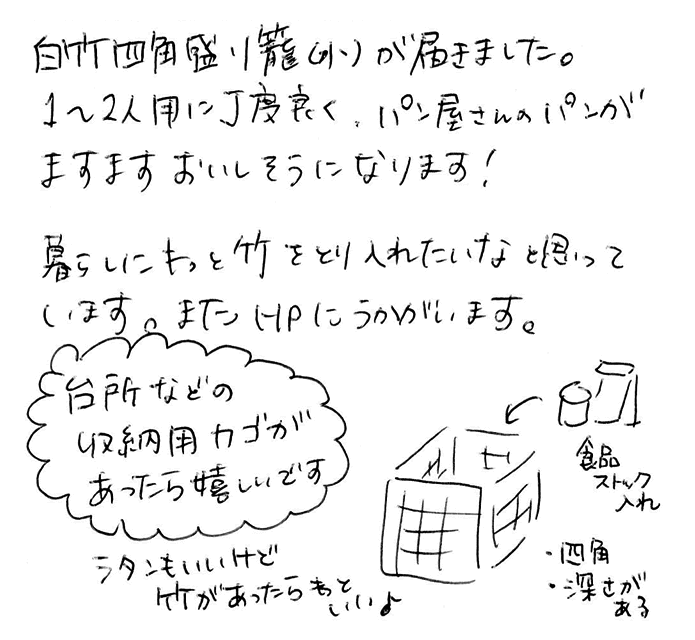 白竹四角盛り籠(小)が届きました。
1〜2人用に丁度良く、パン屋さんのパンが
ますますおいしそうになります!
暮らしにもっと竹をとり入れたいなと思って
います。またHPにうかがいます。
台所などの
収納用カゴが
あったら嬉しいです
ラタンもいいけど
竹があったらもっと
いい♪
食品
ストック
入れ
・四角
・深さが
ある